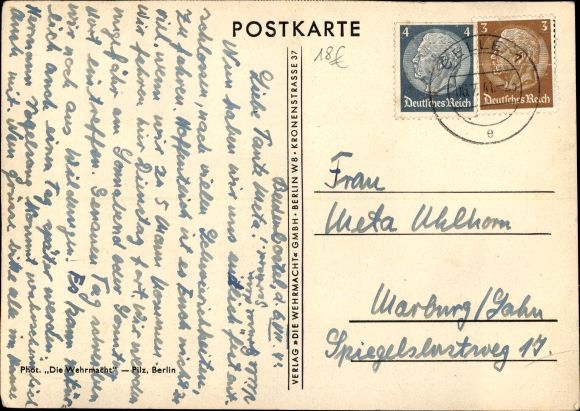 POSTKARTE
18€
4 4
Deutsches Reich
3 3
Deutsches Reich
CELLE
e
Frau
Meta Uhlhorn
Marburg/Lahn
Spiegelslustweg 17.
VERLAG »DIE WEHRMACHT« GMBH · BERLIN W 8 · KRONENSTRASSE 37
Phot. „Die Wehrmacht“ — Pilz, Berlin
Liebe Tante Meta!
Nun haben wir uns endlich fest ent
schlossen, nach vielen Schwierigkeiten
zu fahren. Hoffentlich ist es Euch nicht zu
viel, wenn wir zu 5 Mann kommen.
Wir fahren hier Dienstag fort. Wir werden
ungefähr am Sonnabend oder Sonntag
dort eintreffen. Genauen Tag schreiben
wir noch aus Wildungen. Es kann natür
lich auch ein Tag später werden.
Hermann Vogelsang kommt wahrscheinlich
auch mit. Nun Grüße